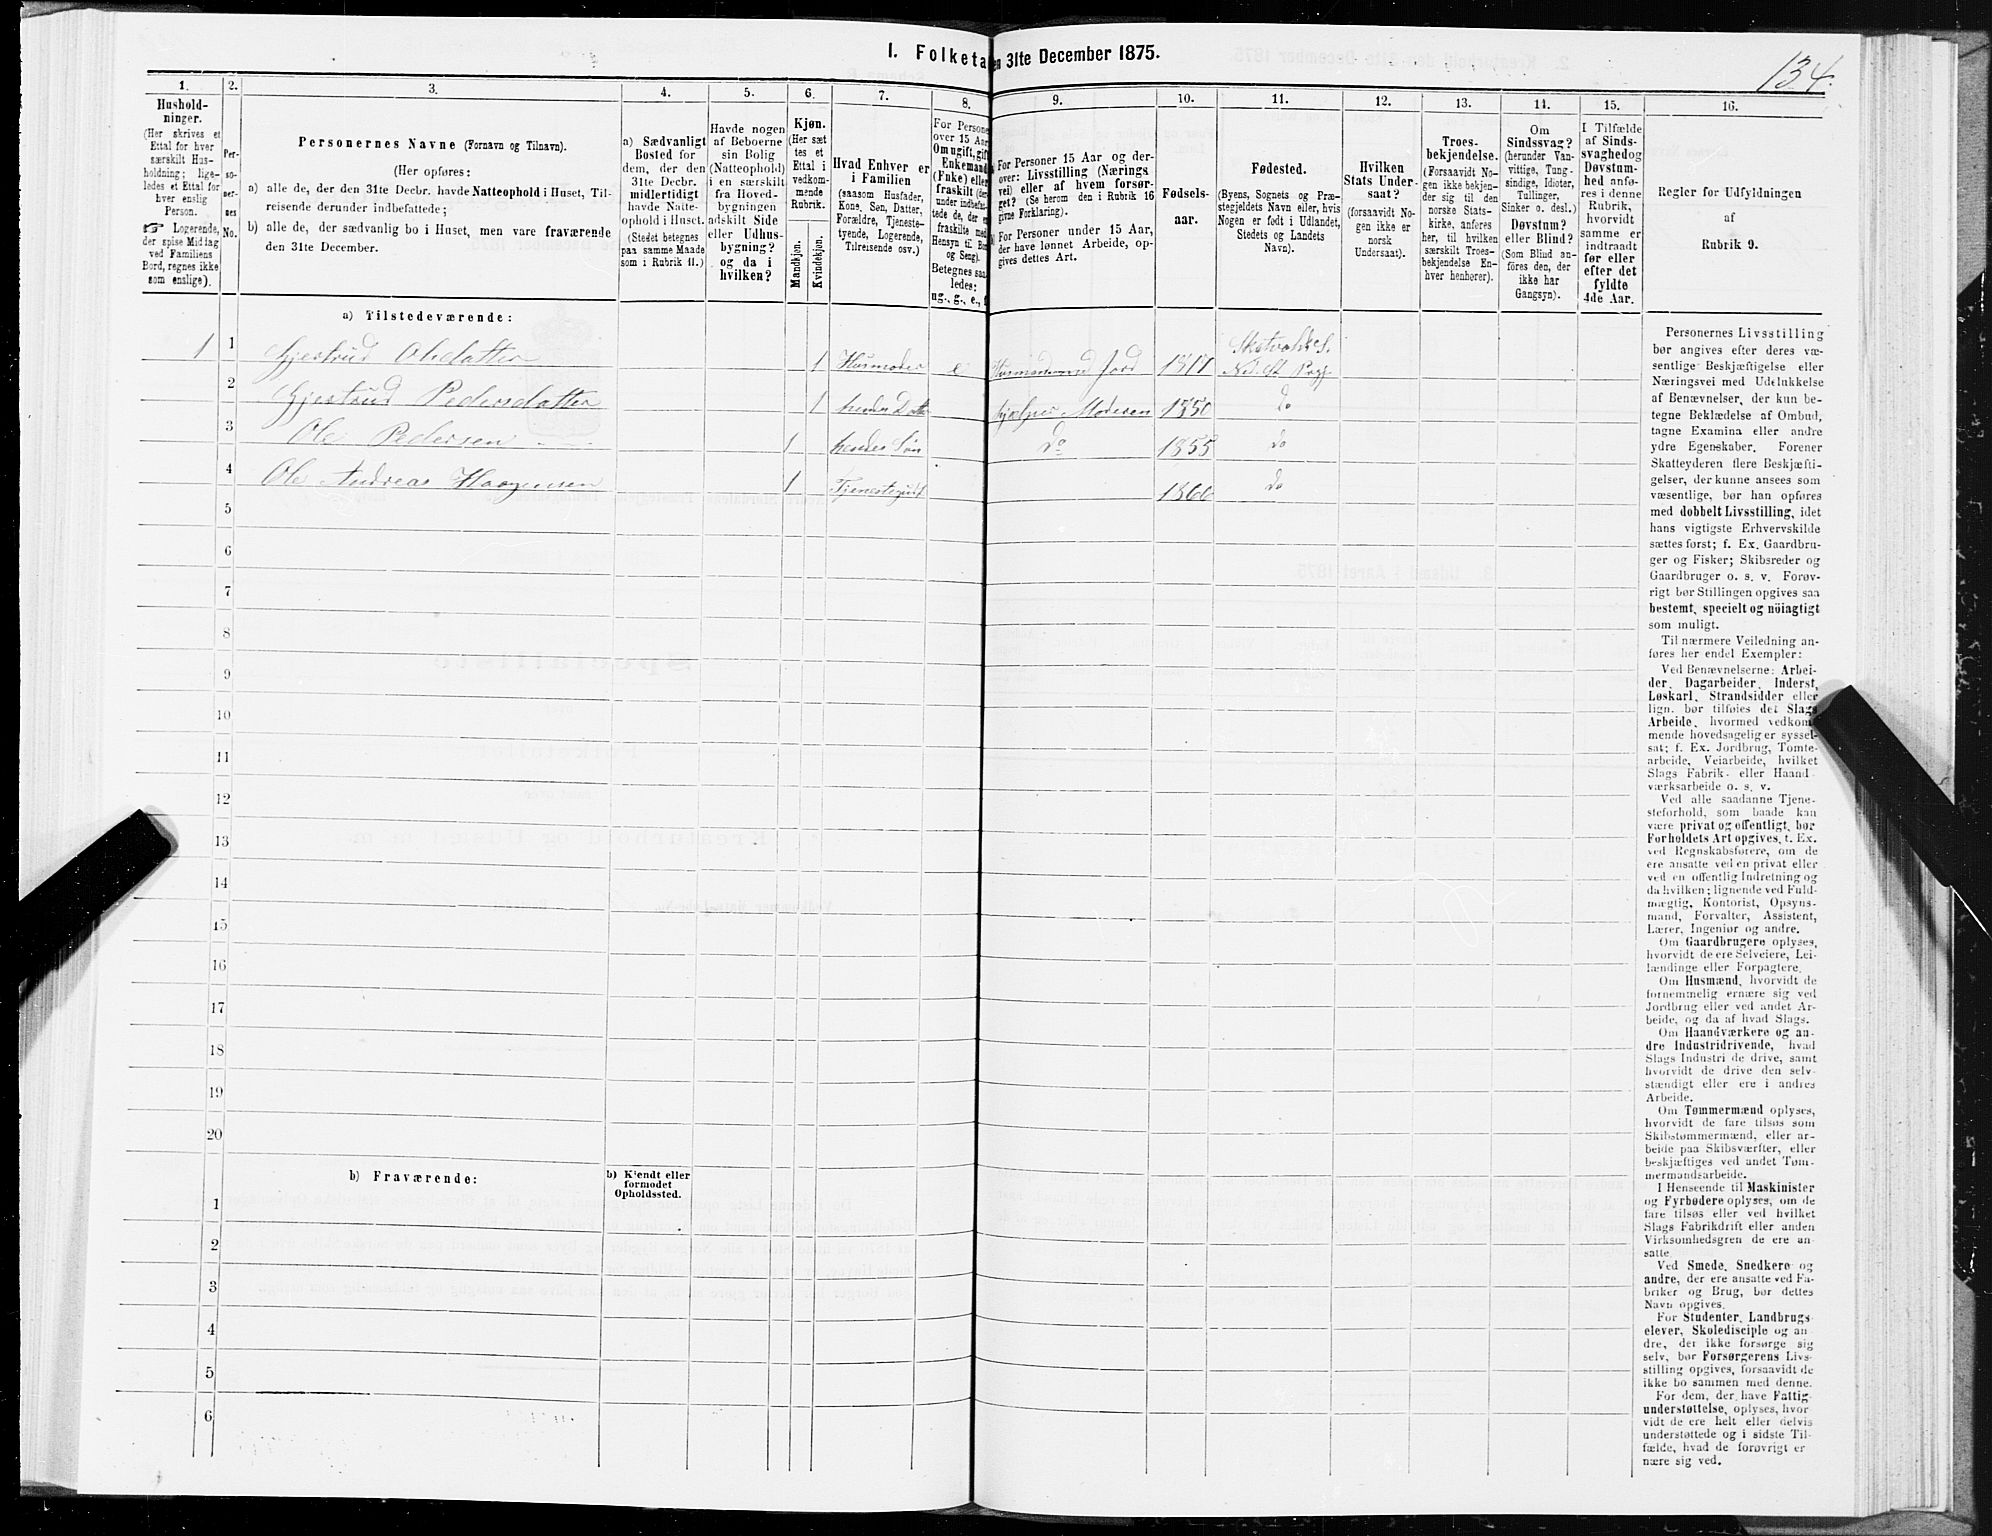 I. Folketa
en 31te December 1875.
134.
1.
2.
3.
4.
5.
6.
7.
8.
9.
10.
11.
12.
13.
14.
15.
16.
Hushold-
ninger.
(Her skrives et
Ettal for hver
særskilt Hus-
holdning; lige-
ledes et Ettal for
hver enslig
Person.
☞ Logerende,
der spise Middag
ved Familiens
Bord, regnes ikke
som enslige).
Per-
so-
ner-
nes
No.
Personernes Navne (Fornavn og Tilnavn).
(Her opføres:
a) alle de, der den 31te Decbr. havde Natteophold i Huset, Til-
reisende derunder indbefattede;
b) alle de, der sædvanlig bo i Huset, men vare fraværende
den 31te December.
a) Sædvanligt
Bosted for
dem, der den
31te Decbr.
midlertidigt
havde Natte-
ophold i Huset.
(Stedet betegnes
paa samme Maade
som i Rubrik 11.)
Havde nogen
af Beboerne
sin Bolig
(Natteophold)
i en særskilt
fra Hoved-
bygningen
adskilt Side
eller Udhus-
bygning?
og da i
hvilken?
Kjøn.
(Her sæt
tes et
Ettal i
vedkom-
mende
Rubrik.
Mandkjøn.
Kvindekjøn.
Hvad Enhver er
i Familien
(saasom Husfader,
Kone, Søn, Datter,
Forældre, Tjeneste-
tyende, Logerende,
Tilreisende osv.)
For Persone
over 15 Aar
Om ugift, gift
Enkemand
(Enke) eller
fraskilt (der
under indbefat-
tede de, der e
fraskilte med
Hensyn til Bo
og Seng).
Betegnes saa-
ledes:
ug., g., e., f
For Personer 15 Aar og der-
over: Livsstilling (Nærings
vei) eller af hvem forsør-
get? (Se herom den i Rubrik 16
givne Forklaring).
For Personer under 15 Aar,
der have lønnet Arbeide, op-
gives dettes Art.
Fødsels-
aar.
Fødested.
(Byens, Sognets og Præ-
stegjeldets Navn eller, hvis
Nogen er født i Udlandet,
Stedets og Landets
Navn).
Hvilken
Stats Under-
saat?
(forsaavidt No-
gen ikke er
norsk
Undersaat).
Troes-
bekjendelse.
(Forsaavidt No-
gen ikke bekjen-
der sig til den
norske Stats-
kirke, anføres
her, til hvilken
særskilt Troes-
bekjendelse En-
hver henhører).
Om
Sindssvag?
(herunder Van-
vittige, Tung-
sindige, Idioter,
Tullinger,
Sinker o. desl.)
Døvstum?
eller Blind?
(Som Blind an-
føres den, der
ikke har
Gangsyn).
I Tilfælde
af Sinds-
svaghed og
Døvstum-
hed anfø-
res i denne
Rubrik,
hvorvidt
samme er
indtraadt
før eller
efter det
fyldte
4de Aar.
Regler for Udfyldningen
af
Rubrik 9.
a) Tilstedeværende:
1 1 Gjertrud Olsdatter 1 Husmoder e Jord 1811 Ned. St Prgj
2 Gjertrud Pedersdatter 1 hendes Datter hjælper Moderen 1850 do
3 Ole Pedersen 1 hendes Søn do 1855 do
4 Ole Andreas Haagensen 1 Tjenestegut 1860 do
5
6
7
8
9
10
11
12
13
14
15
16
17
18
19
20
b) Fraværende:
b) Kjendt eller
formodet
Opholdssted.
1
2
3
4
5
6
Personernes Livsstilling
bør angives efter deres væ-
sentlige Beskjæftigelse eller
Næringsvei med Udelukkelse
af Benævnelser, der kun be-
tegne Beklædelse af Ombud,
tagne Examina eller andre
ydre Egenskaber. Forener
Skatteyderen flere Beskjæfti-
gelser, der kunne ansees som
væsentlige, bør han opføres
med dobbelt Livsstilling, idet
hans vigtigste Erhvervskilde
sættes først; f. Ex. Gaardbru-
ger og Fisker; Skibsreder og
Gaardbruger o. s. v. Forøv-
rigt bør Stillingen opgives saa
bestemt, specielt og nöiagtigt
som muligt.
Til nærmere Veiledning an-
føres her endel Exempler:
Ved Benævnelserne: Arbei-
der, Dagarbeider, Inderst,
Løskarl, Strandsidder eller
lign. bør tilføies det Slags
Arbeide, hvormed vedkom-
mende hovedsagelig er syssel-
sat; f. Ex. Jordbrug, Tomte-
arbeide, Veiarbeide, hvilket
Slags Fabrik- eller Haand-
værksarbeide o. s. v.
Ved alle saadanne Tjene-
steforhold, som baade kan
være privat og offentligt, bør
Forholdets Art opgives, f. Ex.
ved Regnskabsførere, om de
ere ansatte ved en privat eller
ved en offentlig Indretning og
da hvilken; lignende ved Fuld-
mægtig, Kontorist, Opsyns-
mand, Forvalter, Assistent,
Lærer, Ingeniør og andre.
Om Gaardbrugere oplyses,
hvorvidt de ere Selveiere, Lei-
lændinge eller Forpagtere.
Om Husmænd, hvorvidt de
fornemmelig ernære sig ved
Jordbrug eller ved andet Ar-
beide, og da af hvad Slags.
Om Haandværkere og an-
dre Industridrivende, hvad
Slags Industri de drive, samt
hvorvidt de drive den selv-
stændigt eller ere i andres
Arbeide.
Om Tømmermænd oplyses,
hvorvidt de fare tilsøs som
Skibstømmermænd, eller ar-
beide paa Skibsværfter, eller
beskjæftiges ved andet Tøm-
mermandsarbeide.
I Henseende til Maskinister
og Fyrbødere oplyses, om de
fare tilsøs eller ved hvilket
Slags Fabrikdrift eller anden
Virksomhedsgren de ere an-
satte.
Ved Smede, Snedkere og
andre, der ere ansatte ved Fa-
briker og Brug, bør dettes
Navn opgives.
For Studenter, Landbrugs-
elever, Skoledisciple og an-
dre, der ikke forsørge sig
selv, bør Forsørgerens Livs-
stilling opgives, forsaavidt de
ikke bo sammen med denne.
For dem, der have Fattig-
understøttelse, oplyses, hvor-
vidt de ere helt eller delvis
understøttede og i sidste Til-
fælde, hvad de forøvrigt er-
nære sig ved.